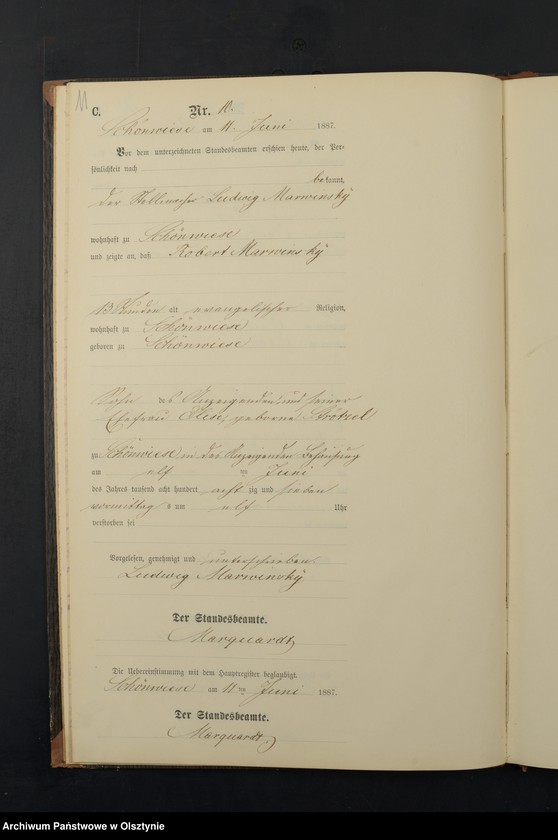 11
C. Nr. 10.
Schönwiese am 11. Juni 1887.
Vor dem unterzeichneten Standesbeamten erschien heute, der Per-
sönlichkeit nach
bekannt,
der Stellmacher Ludwig Marwinsky
wohnhaft zu Schönwiese
und zeigte an, daß Robert Marwinsky
13 Stunden alt evangelischer Religion,
wohnhaft zu Schönwiese
geboren zu Schönwiese
Sohn des Anzeigenden und seiner
Ehefrau Elise, geborne
zu Schönwiese in des Anzeigenden Behausung
am elf ten Juni
des Jahres tausend acht hundert acht zig und sieben
vormittag s um elf Uhr
verstorben sei
Vorgelesen, genehmigt und unterschrieben
Ludwig Marwinsky
Der Standesbeamte.
Marquardt
Die Uebereinstimmung mit dem Hauptregister beglaubigt.
Schönwiese am 11 ten Juni 1887.
Der Standesbeamte.
Marquardt.
Archiwum Państwowe w Olsztynie